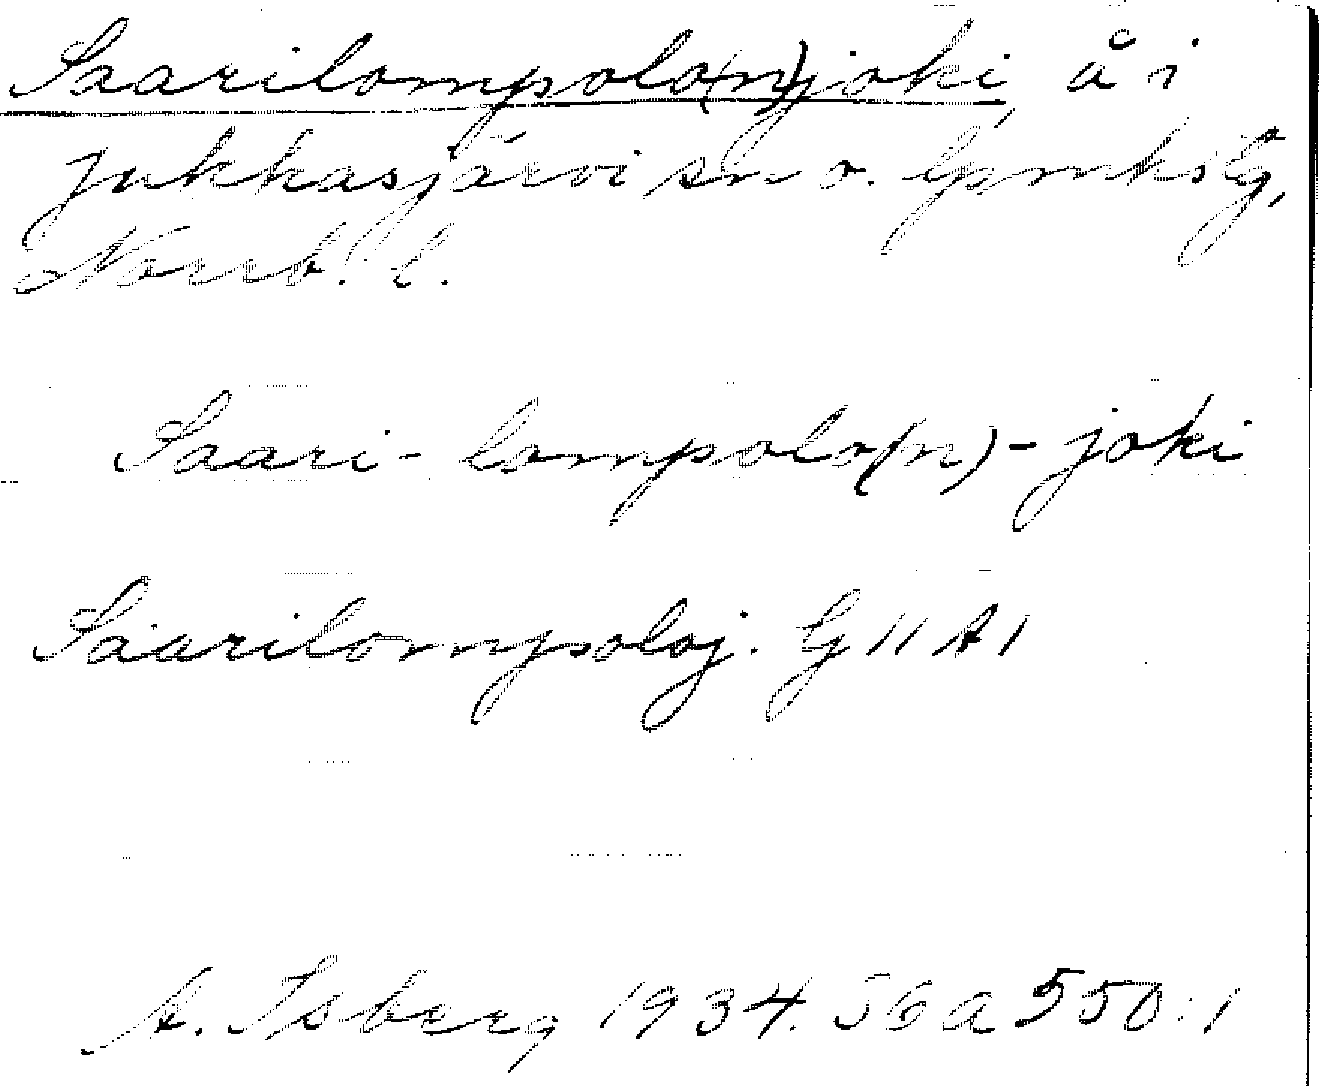 Saarilompolo(n)joki, å i
Jukkasjärvi sn o. lpmksg,
Norrb. l.
Saari-lompolo(n)-joki
Saarilompoloj. G 11 A 1
A. Isberg 1934. 56 a 550:1